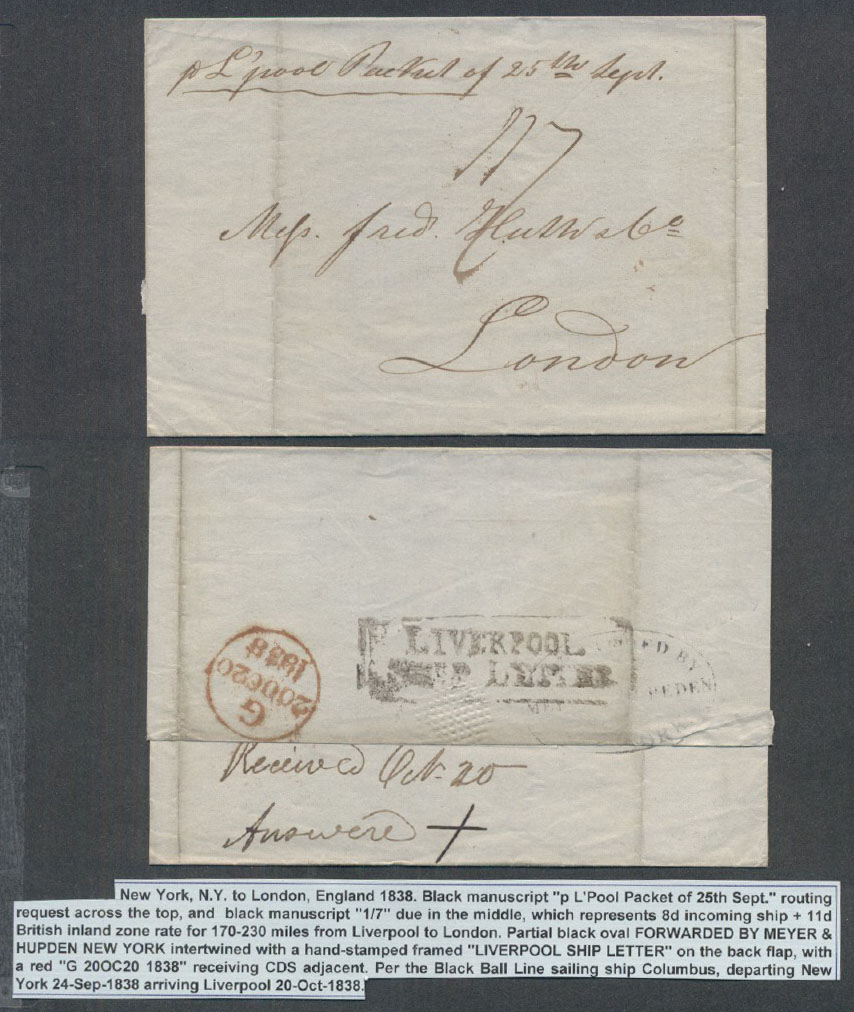 p L'pool Packet of 25th Sept.
1/7
Mess. fred. Huth & Co
London
LIVERPOOL
SHIP LETTER
ED BY
PEDEN
G
20OC20
1838
Received Oct. 20
Answered
New York, N.Y. to London, England 1838. Black manuscript "p L'Pool Packet of 25th Sept." routing
request across the top, and black manuscript "1/7" due in the middle, which represents 8d incoming ship + 11d
British inland zone rate for 170-230 miles from Liverpool to London. Partial black oval FORWARDED BY MEYER &
HUPDEN NEW YORK intertwined with a hand-stamped framed "LIVERPOOL SHIP LETTER" on the back flap, with
a red "G 20OC20 1838" receiving CDS adjacent. Per the Black Ball Line sailing ship Columbus, departing New
York 24-Sep-1838 arriving Liverpool 20-Oct-1838.